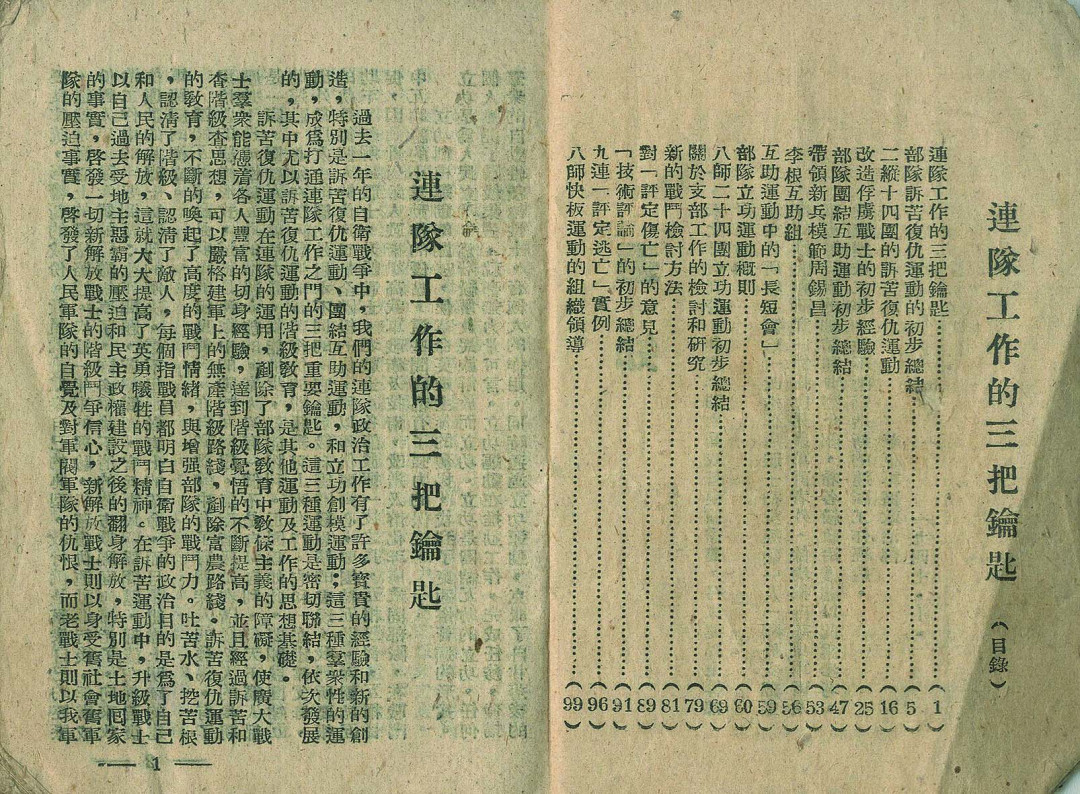 連隊工作的三把鑰匙 (目錄)
連隊工作的三把鑰匙……(1)
部隊訴苦復仇運動的初步總結……(5)
二縱十四團的訴苦復仇運動……(16)
改造俘虜戰士的初步經驗……(25)
部隊團結互助運動初步總結……(47)
帶領新兵模範周錫昌……(53)
李根互助組……(56)
互助運動中的「長短會」……(59)
部隊立功運動概則……(60)
八師二十四團立功運動初步總結……(69)
關於支部工作的檢討和研究……(79)
新的戰鬥檢討方法……(81)
對「評定傷亡」的意見……(89)
「技術評論」的初步總結……(91)
九連「評定逃亡」實例……(96)
八師快板運動的組織領導……(99)
連隊工作的三把鑰匙
過去一年的自衛戰爭中,我們的連隊政治工作有了許多寶貴的經驗和新的創
造,特別是訴苦復仇運動、團結互助運動,和立功創模運動;這三種羣衆性的運
動,成爲打通連隊工作之門的三把重要鑰匙。這三種運動是密切聯結,依次發展
的,其中尤以訴苦復仇運動的階級教育,是其他運動及工作的思想基礎。
訴苦復仇運動在連隊的運用,剷除了部隊教育中教條主義的障礙,使廣大戰
士羣衆能憑着各人豐富的切身經驗,達到階級覺悟的不斷提高,並且經過訴苦和
查階級查思想,可以嚴格建軍上的無產階級路綫,剷除富農路綫。訴苦復仇運動
的教育,不斷的喚起了高度的戰鬥情緒,與增强部隊的戰鬥力。吐苦水、挖苦根
,認清了階級、認清了敵人,每個指戰員都明白自衛戰爭的政治目的是爲了自己
和人民的解放,這就大大提高了英勇犧牲的戰鬥精神。在訴苦運動中,升級戰士
以自己過去受地主惡霸的壓迫和民主政權建設之後的翻身解放,特別是土地囘家
的事實,啓發一切新解放戰士的階級鬥爭信心,新解放戰士則以身受舊社會舊軍
隊的壓迫事實,啓發了人民軍隊的自覺及對軍閥軍隊的仇恨,而老戰士則以我軍
— 1 —